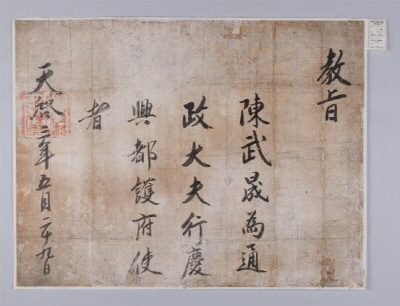 教旨
陳武晟為通
政大夫行慶
興都護府使
者
天啓二年五月二十九日